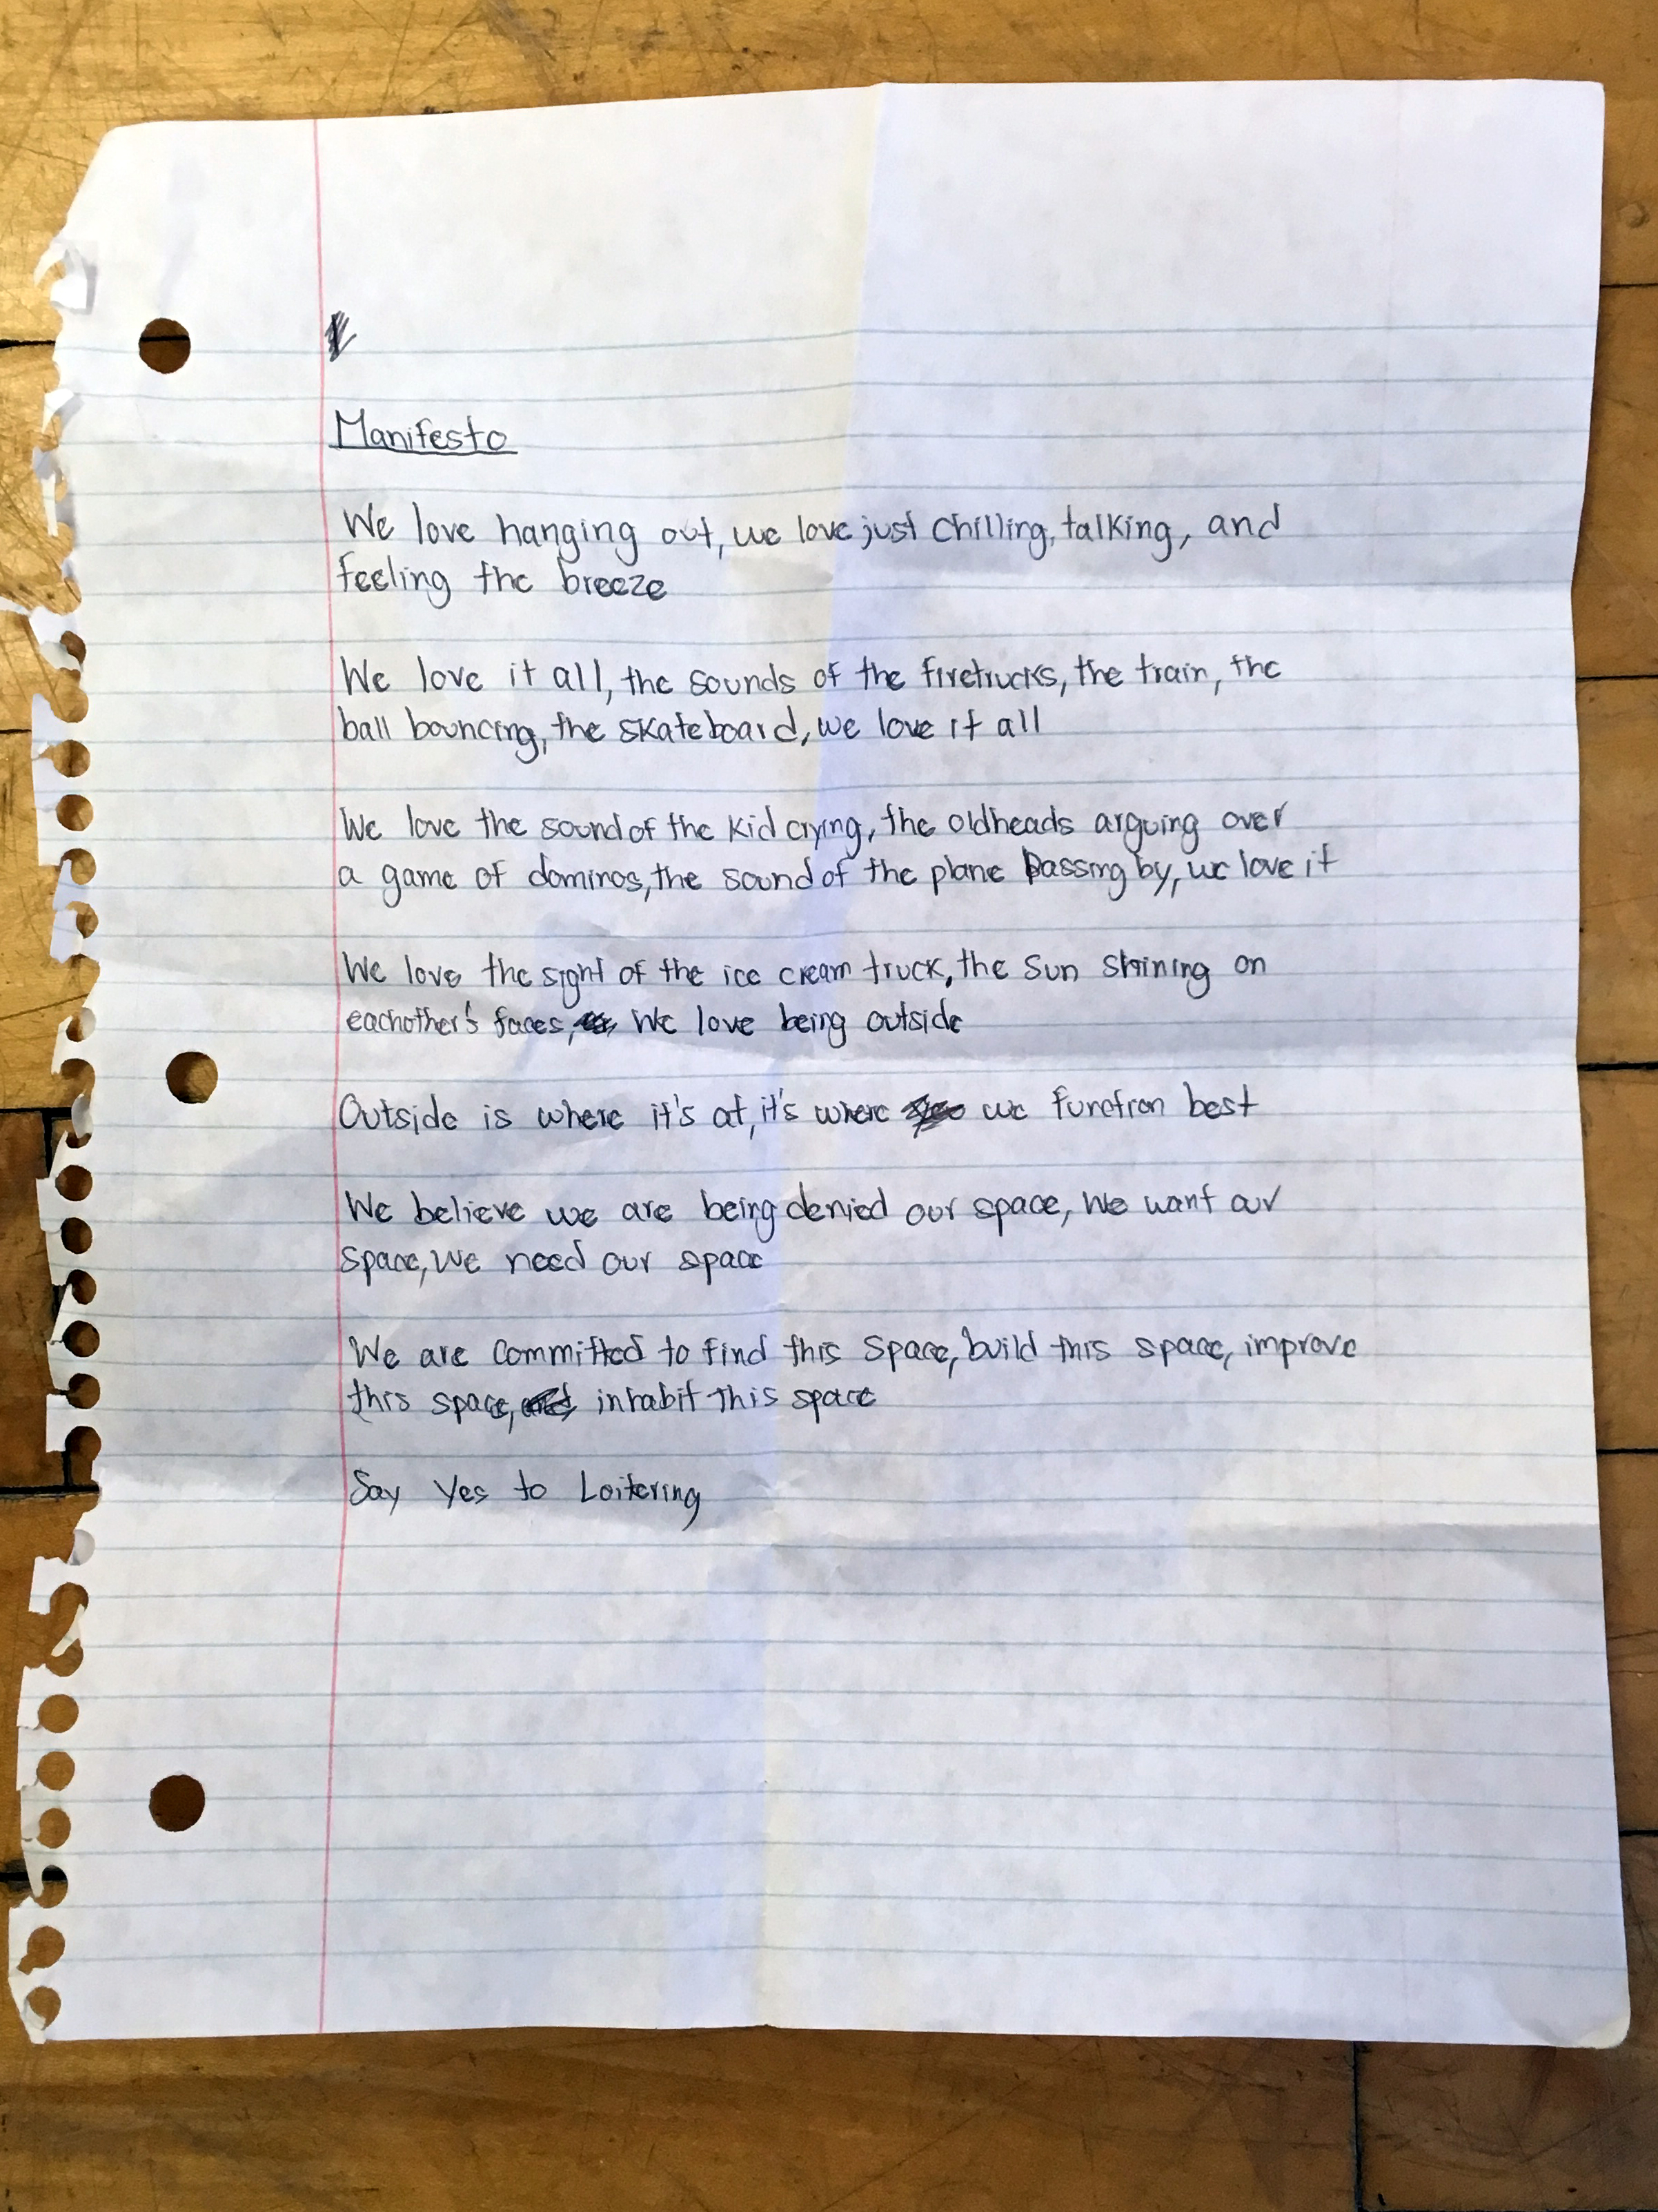 Manifesto
We love hanging out, we love just chilling, talking, and
feeling the breeze
We love it all, the sounds of the firetrucks, the train, the
ball bouncing, the skateboard, we love it all
We love the sound of the kid crying, the oldheads arguing over
a game of dominos, the sound of the plane passing by, we love it
We love the sight of the ice cream truck, the sun shining on
eachother's faces, We love being outside
Outside is where it's at, it's where we function best
We believe we are being denied our space, We want our
space, We need our space
We are committed to find this space, build this space, improve
this space, inhabit this space
Say Yes to Loitering